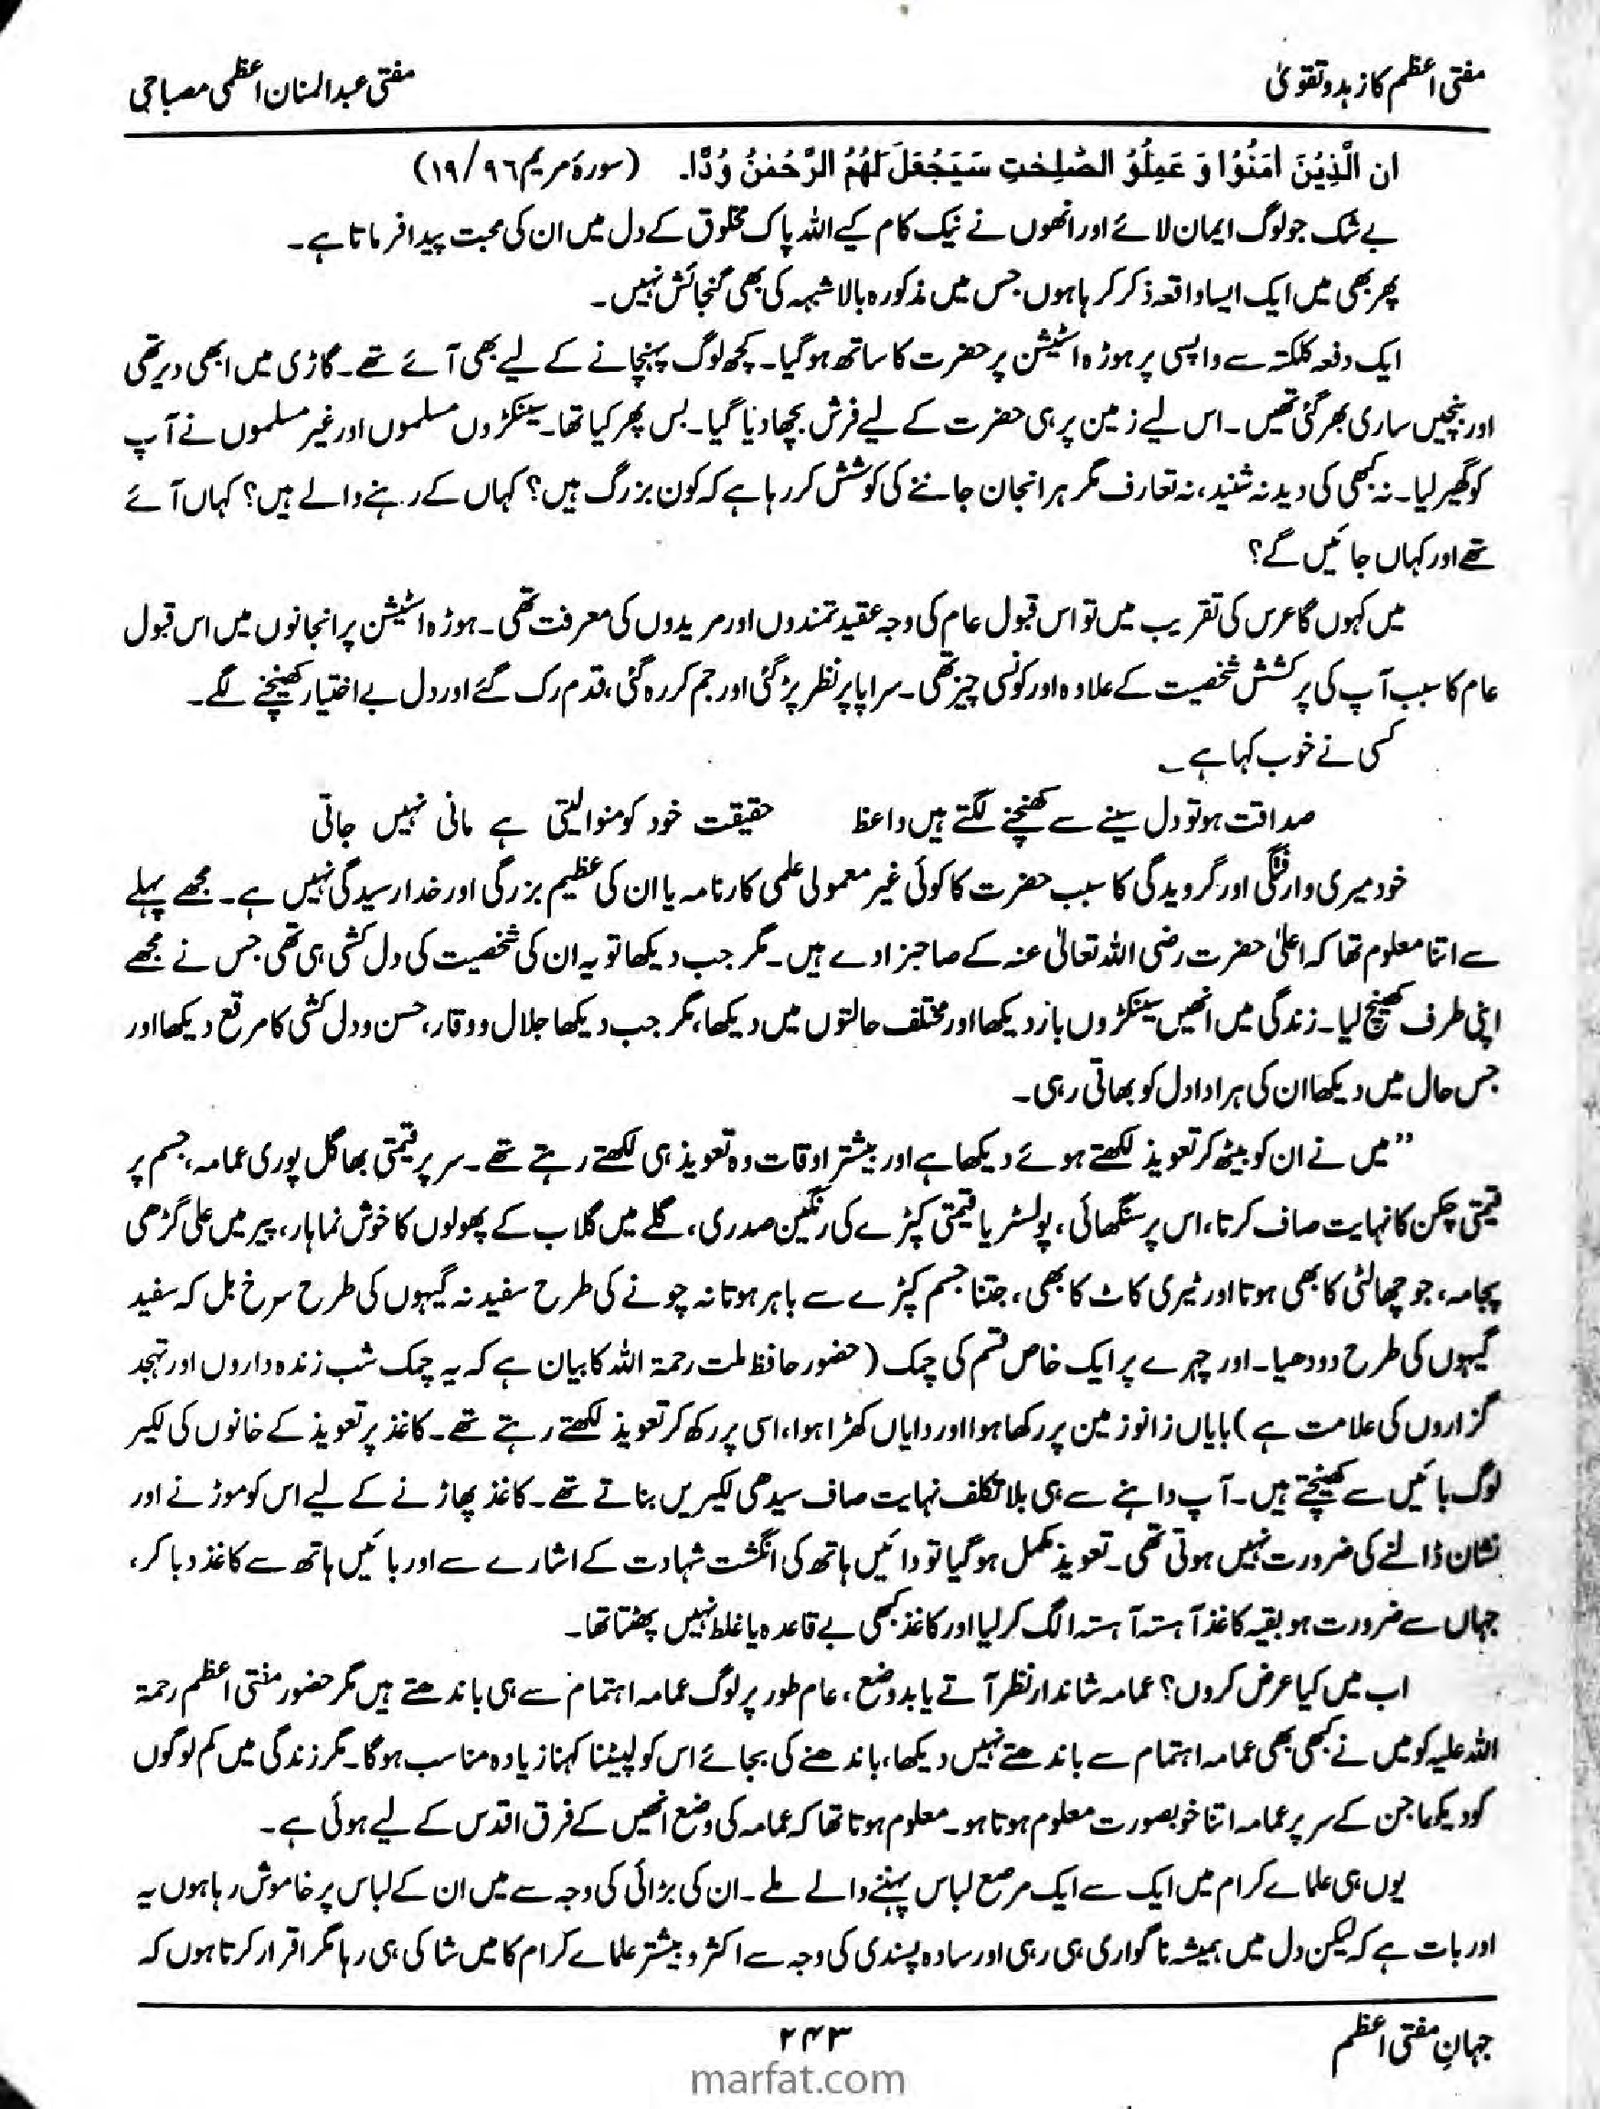 مفتی اعظم کا زہد و تقویٰ
مفتی عبدالمنان اعظمی مصباحی
ان الَّذِیْنَ اٰمَنُوْا وَ عَمِلُوْ الصّٰلِحٰتِ سَیَجْعَلَ لَهُمُ الرَّحْمٰنُ وُدًّا۔ (سورۂ مریم ۹۶/۱۹)
بے شک جو لوگ ایمان لائے اور انھوں نے نیک کام کیے اللہ پاک مخلوق کے دل میں ان کی محبت پیدا فرماتا ہے۔
پھر بھی میں ایک ایسا واقعہ ذکر کر رہا ہوں جس میں مذکورہ بالا شبہہ کی بھی گنجائش نہیں۔
ایک دفعہ کلکتہ سے واپسی پر ہوڑہ اسٹیشن پر حضرت کا ساتھ ہو گیا۔ کچھ لوگ پہنچانے کے لیے بھی آئے تھے۔ گاڑی میں ابھی دیر تھی
اور بنچیں ساری بھر گئی تھیں۔ اس لیے زمین پر ہی حضرت کے لیے فرش بچھا دیا گیا۔ بس پھر کیا تھا۔ سینکڑوں مسلموں اور غیر مسلموں نے آپ
کو گھیر لیا۔ نہ کبھی کی دید نہ شنید، نہ تعارف مگر ہر انجان جاننے کی کوشش کر رہا ہے کہ کون بزرگ ہیں؟ کہاں کے رہنے والے ہیں؟ کہاں آئے
تھے اور کہاں جائیں گے؟
میں کہوں گا عرس کی تقریب میں تو اس قبول عام کی وجہ عقیدتمندوں اور مریدوں کی معرفت تھی۔ ہوڑہ اسٹیشن پر انجانوں میں اس قبول
عام کا سبب آپ کی پر کشش شخصیت کے علاوہ اور کونسی چیز تھی۔ سراپا پر نظر پڑ گئی اور جم کر رہ گئی، قدم رک گئے اور دل بے اختیار کھنچنے لگے۔
کسی نے خوب کہا ہے ؎
صداقت ہو تو دل سینے سے کھنچنے لگتے ہیں واعظ    حقیقت خود کو منوا لیتی ہے مانی نہیں جاتی
خود میری وارفتگی اور گرویدگی کا سبب حضرت کا کوئی غیر معمولی علمی کارنامہ یا ان کی عظیم بزرگی اور خدا رسیدگی نہیں ہے۔ مجھے پہلے
سے اتنا معلوم تھا کہ اعلیٰ حضرت رضی اللہ تعالیٰ عنہ کے صاحبزادے ہیں۔ مگر جب دیکھا تو یہ ان کی شخصیت کی دل کشی ہی تھی جس نے مجھے
اپنی طرف کھینچ لیا۔ زندگی میں انھیں سینکڑوں بار دیکھا اور مختلف حالتوں میں دیکھا، مگر جب دیکھا جلال و وقار، حسن و دل کشی کا مرقع دیکھا اور
جس حال میں دیکھا ان کی ہر ادا دل کو بھاتی رہی۔
”میں نے ان کو بیٹھ کر تعویذ لکھتے ہوئے دیکھا ہے اور بیشتر اوقات وہ تعویذ ہی لکھتے رہتے تھے۔ سر پر قیمتی بھاگل پوری عمامہ، جسم پر
قیمتی چکن کا نہایت صاف کرتا، اس پر سنگھائی، پولسٹر یا قیمتی کپڑے کی رنگین صدری، گلے میں گلاب کے پھولوں کا خوش نما ہار، پیر میں علی گڑھی
پجامہ، جو چھالٹی کا بھی ہوتا اور ٹیری کاٹ کا بھی، جتنا جسم کپڑے سے باہر ہوتا نہ چونے کی طرح سفید نہ گیہوں کی طرح سرخ بل کہ سفید
گیہوں کی طرح دودھیا۔ اور چہرے پر ایک خاص قسم کی چمک (حضور حافظ ملت رحمۃ اللہ کا بیان ہے کہ یہ چمک شب زندہ داروں اور تہجد
گزاروں کی علامت ہے) بایاں زانو زمین پر رکھا ہوا اور دایاں کھڑا ہوا، اسی پر رکھ کر تعویذ لکھتے رہتے تھے۔ کاغذ پر تعویذ کے خانوں کی لکیر
لوگ بائیں سے کھینچتے ہیں۔ آپ داہنے سے ہی بلا تکلف نہایت صاف سیدھی لکیریں بناتے تھے۔ کاغذ پھاڑنے کے لیے اس کو موڑنے اور
نشان ڈالنے کی ضرورت نہیں ہوتی تھی۔ تعویذ مکمل ہو گیا تو دائیں ہاتھ کی انگشت شہادت کے اشارے سے اور بائیں ہاتھ سے کاغذ دبا کر،
جہاں سے ضرورت ہو بقیہ کاغذ آہستہ آہستہ الگ کر لیا اور کاغذ کبھی بے قاعدہ یا غلط نہیں پھٹتا تھا۔
اب میں کیا عرض کروں؟ عمامہ شاندار نظر آتے یا بدوضع، عام طور پر لوگ عمامہ اہتمام سے ہی باندھتے ہیں مگر حضور مفتی اعظم رحمۃ
اللہ علیہ کو میں نے کبھی بھی عمامہ اہتمام سے باندھتے نہیں دیکھا، باندھنے کی بجائے اس کو لپیٹنا کہنا زیادہ مناسب ہوگا۔ مگر زندگی میں کم لوگوں
کو دیکھا جن کے سر پر عمامہ اتنا خوبصورت معلوم ہوتا ہو۔ معلوم ہوتا تھا کہ عمامہ کی وضع انھیں کے فرق اقدس کے لیے ہوئی ہے۔
یوں ہی علمائے کرام میں ایک سے ایک مرصع لباس پہننے والے ملے۔ ان کی بڑائی کی وجہ سے میں ان کے لباس پر خاموش رہا ہوں یہ
اور بات ہے کہ لیکن دل میں ہمیشہ ناگواری ہی رہی اور سادہ پسندی کی وجہ سے اکثر و بیشتر علمائے کرام کا میں شاکی ہی رہا مگر اقرار کرتا ہوں کہ
جہانِ مفتی اعظم
۲۴۳
marfat.com